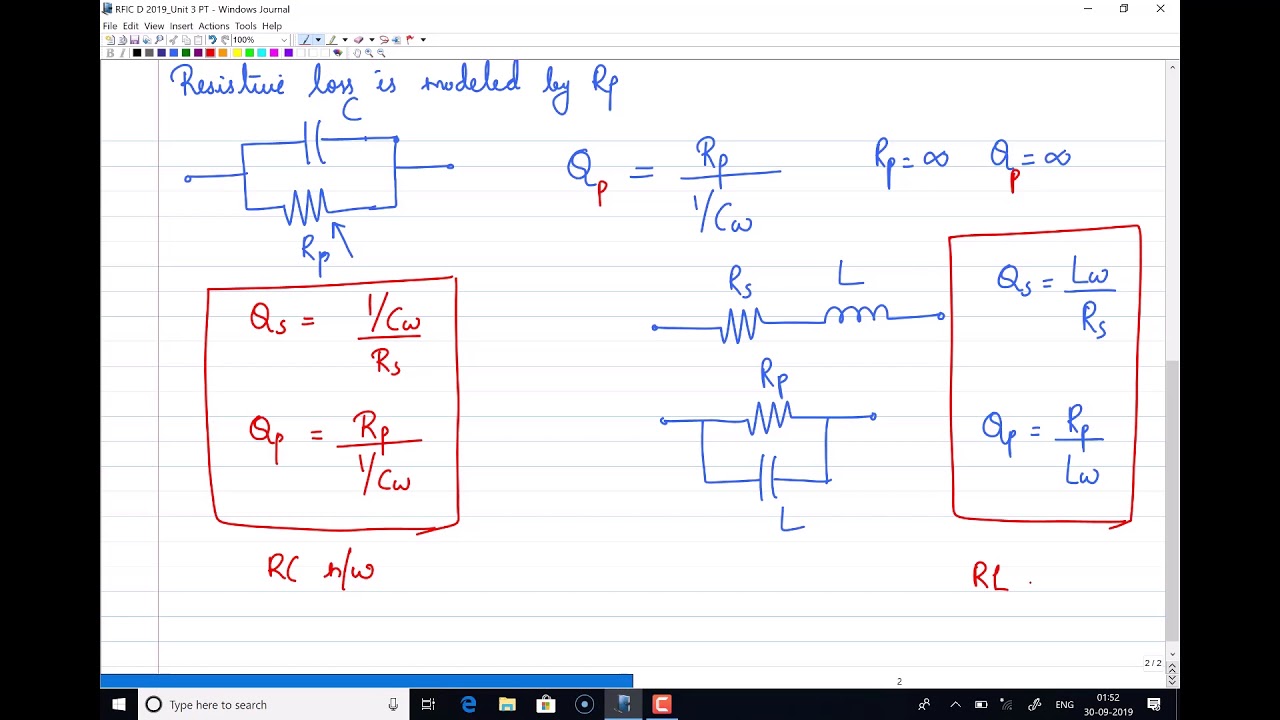 RFIC D 2019_Unit 3 PT - Windows Journal
File Edit View Insert Actions Tools Help
100%
B I
Resistive loss is modeled by Rp
C
Rp
Qp = Rp / 1/Cω
Rp = ∞ Qp = ∞
Qs = 1/Cω / Rs
Qp = Rp / 1/Cω
RC n/w
Rs L
Rp
L
Qs = Lω / Rs
Qp = Rp / Lω
RL .
2 / 2
2
Type here to search
ENG
01:52
30-09-2019